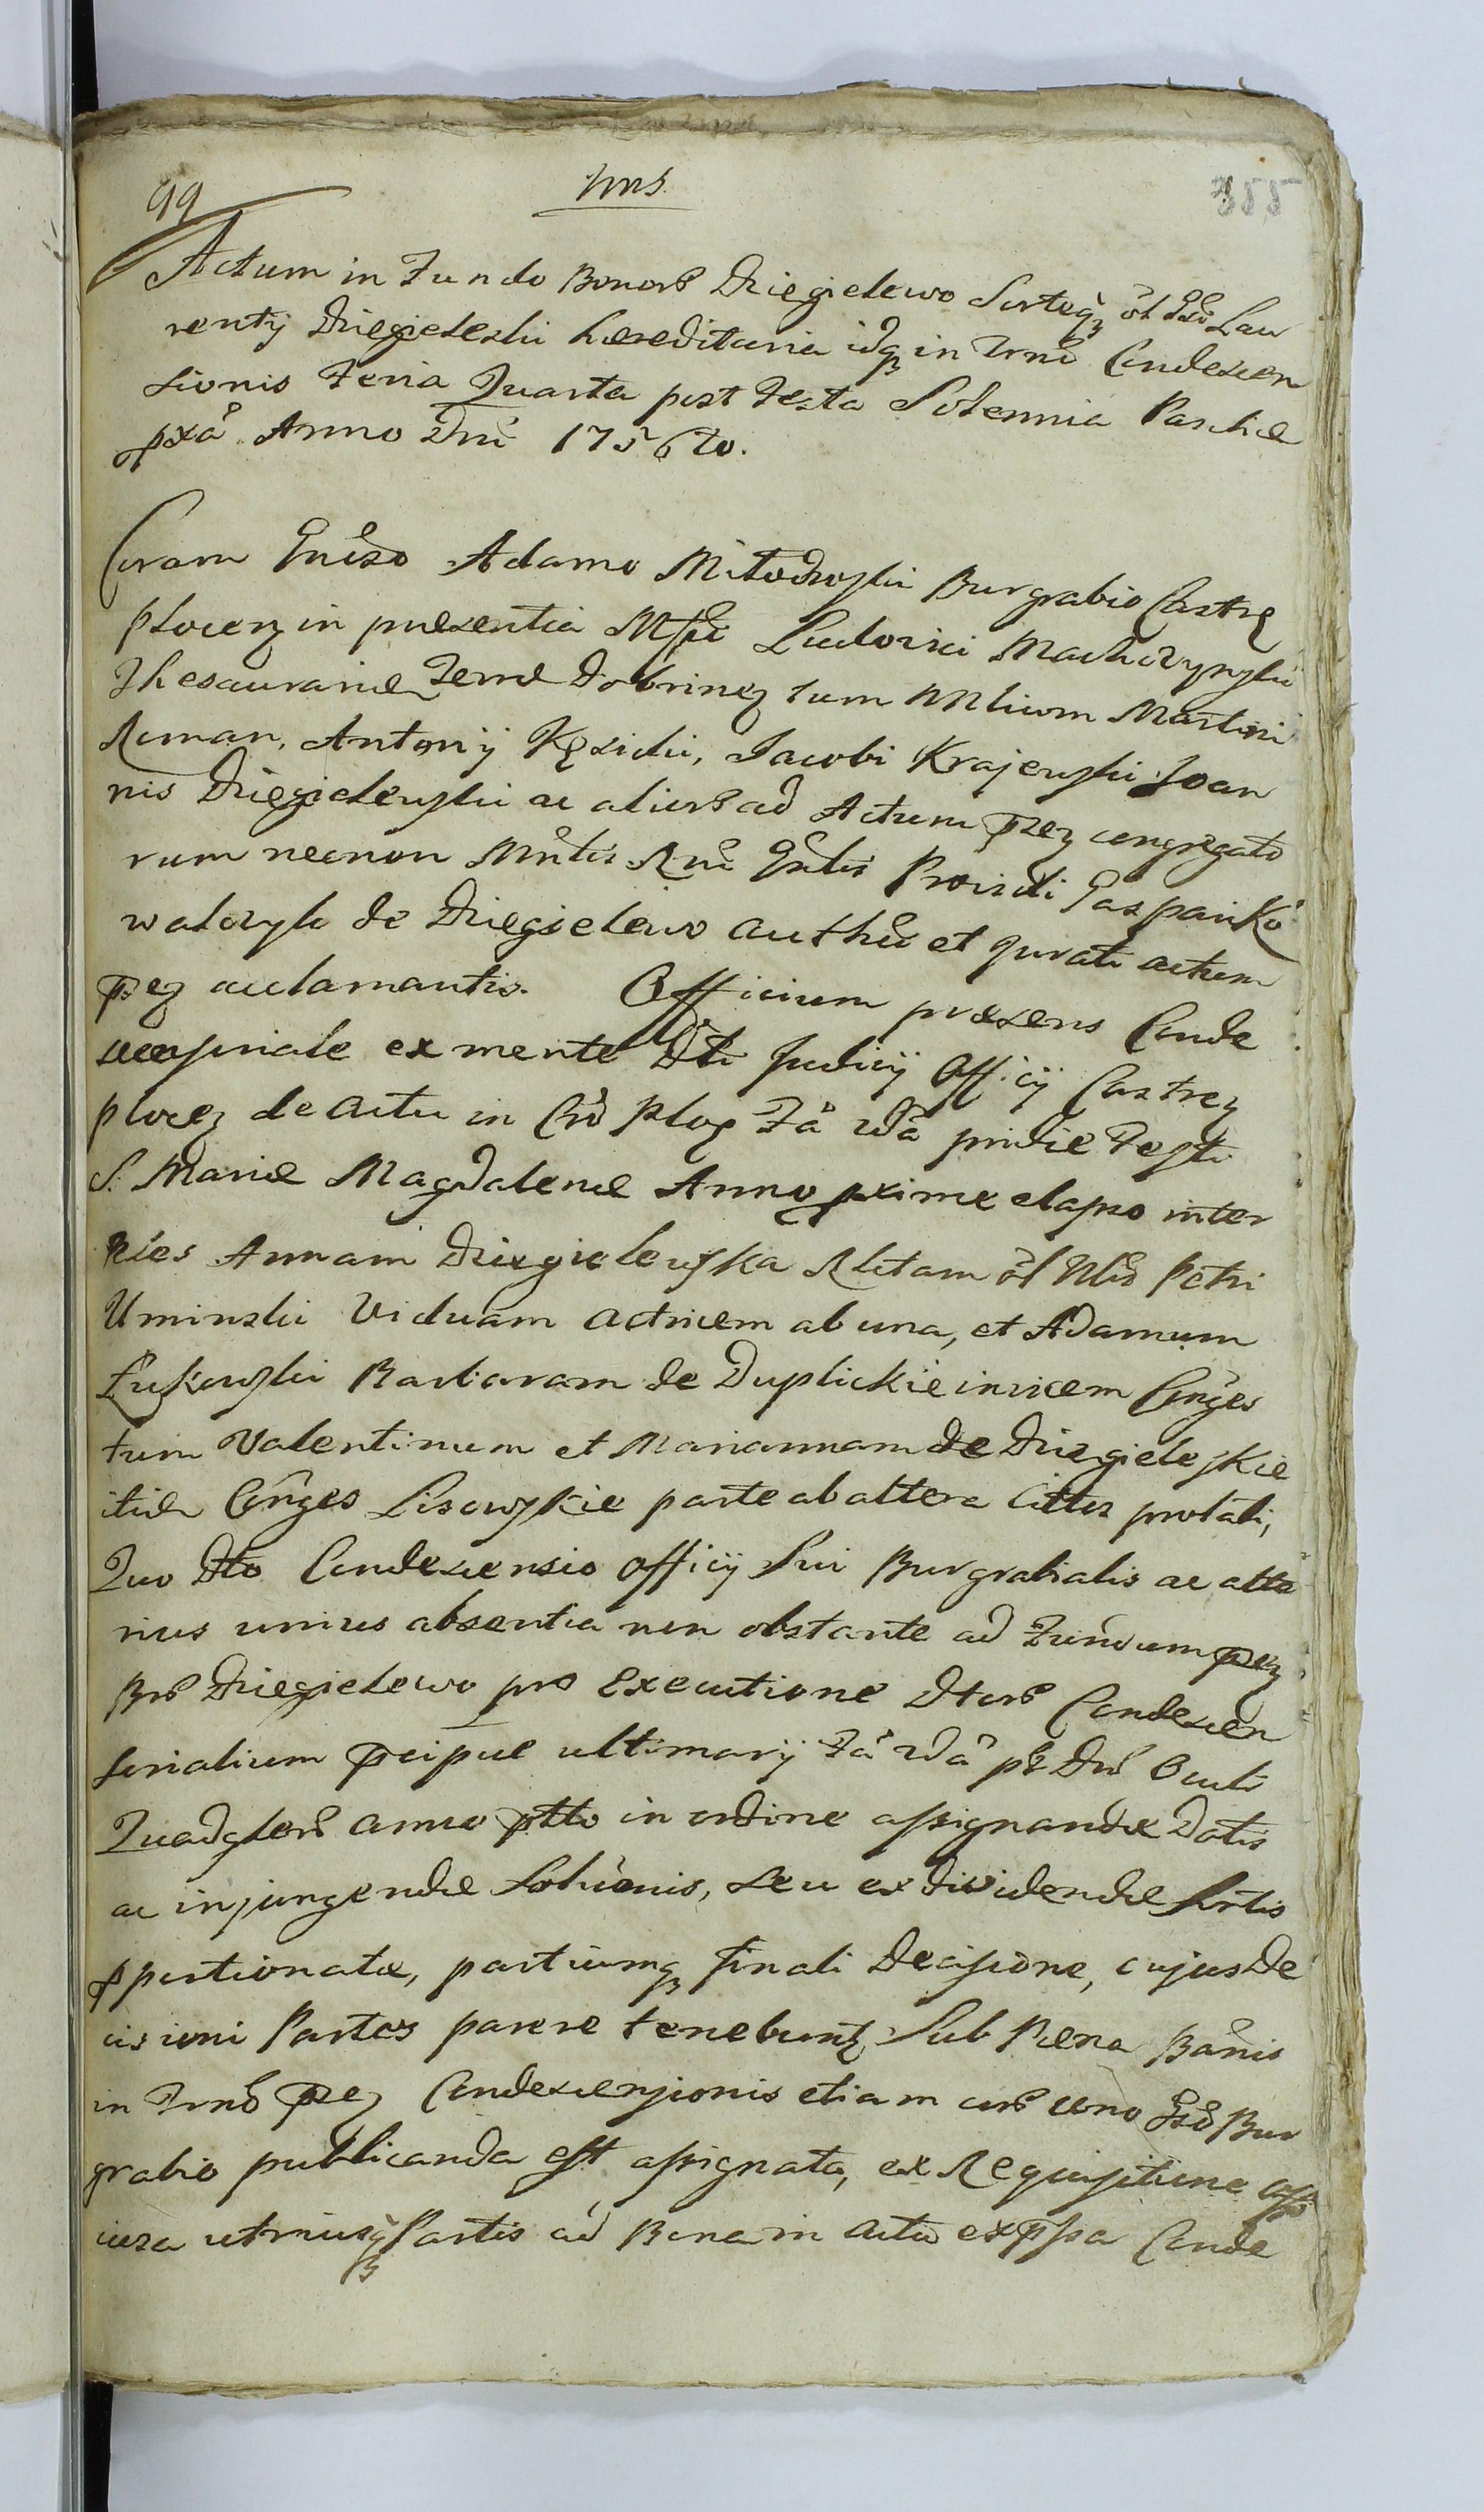 99
355
Actum in Fundo Bonorb Dziegielewo Sorteqz ol Gsi Lau
rentÿ Dziegieleski haereditaria idqz in Trno Condescen
sionis Feria Quarta post Festa Solennia Paschae
pxa Anno Dni 1756to.
Coram Gnrso Adamo Mitodroski Burgrabio Castrz
Plocenz in praesentia Mfci Ludovici Machczynski
Thesaurariae Terrae Dobrinez tum Nblium Martini
Roman, Antonÿ Kęsicki, Jacobi Krajewski Joan
nis Dziegielewski ac aliorb ad Actum Prez congregato
rum necnon Mntis Rni Gnlis Providi Gaspari Ko
walczyk de Dziegielewo authci et jurati actum
prez acclamantis. Officium praesens Conde
scensoriale ex mente Dti Judicÿ Officÿ Castrez
Plocez de actu in Cro Ploc Fa 2da pridie Festi
S. Mariae Magdalenae Anno pxime elapso inter
Nles Annam Dziegielewska Rlctam ol Nlis Petri
Uminski Viduam actricem ab una, et Adamum
Łukowski Barbaram de Duplickie invicem Conges
tum Valentinum et Mariannam de Dziegieleskie
itide Conges Lisowskie parte ab altera Cittos prolati,
Quo Dto Condescensio officÿ sui Burgrabialis ac alte
rius unius absentia non obstante ad Fundum prez
Brb Dziegielewo pro Executione Dtorb Condescen
sorialium Preipue ultimarÿ Fa 2da pt Dnb Oculi
Quadglem anno ptto in ordine assignandae Dotis
ac injungendae Solutionis, seu ex dividendae Sortis
pportionatae, partiumqz finali Decisione, cujus De
cisioni Partes parere tenebuntz Sub Paena Banis
in Trno prez Condescensionis etiam corb uno Gso Bur
grabio publicanda est assignata, ex Requisitione
utriusqz Partis ad Bona in actu exppssa Conde